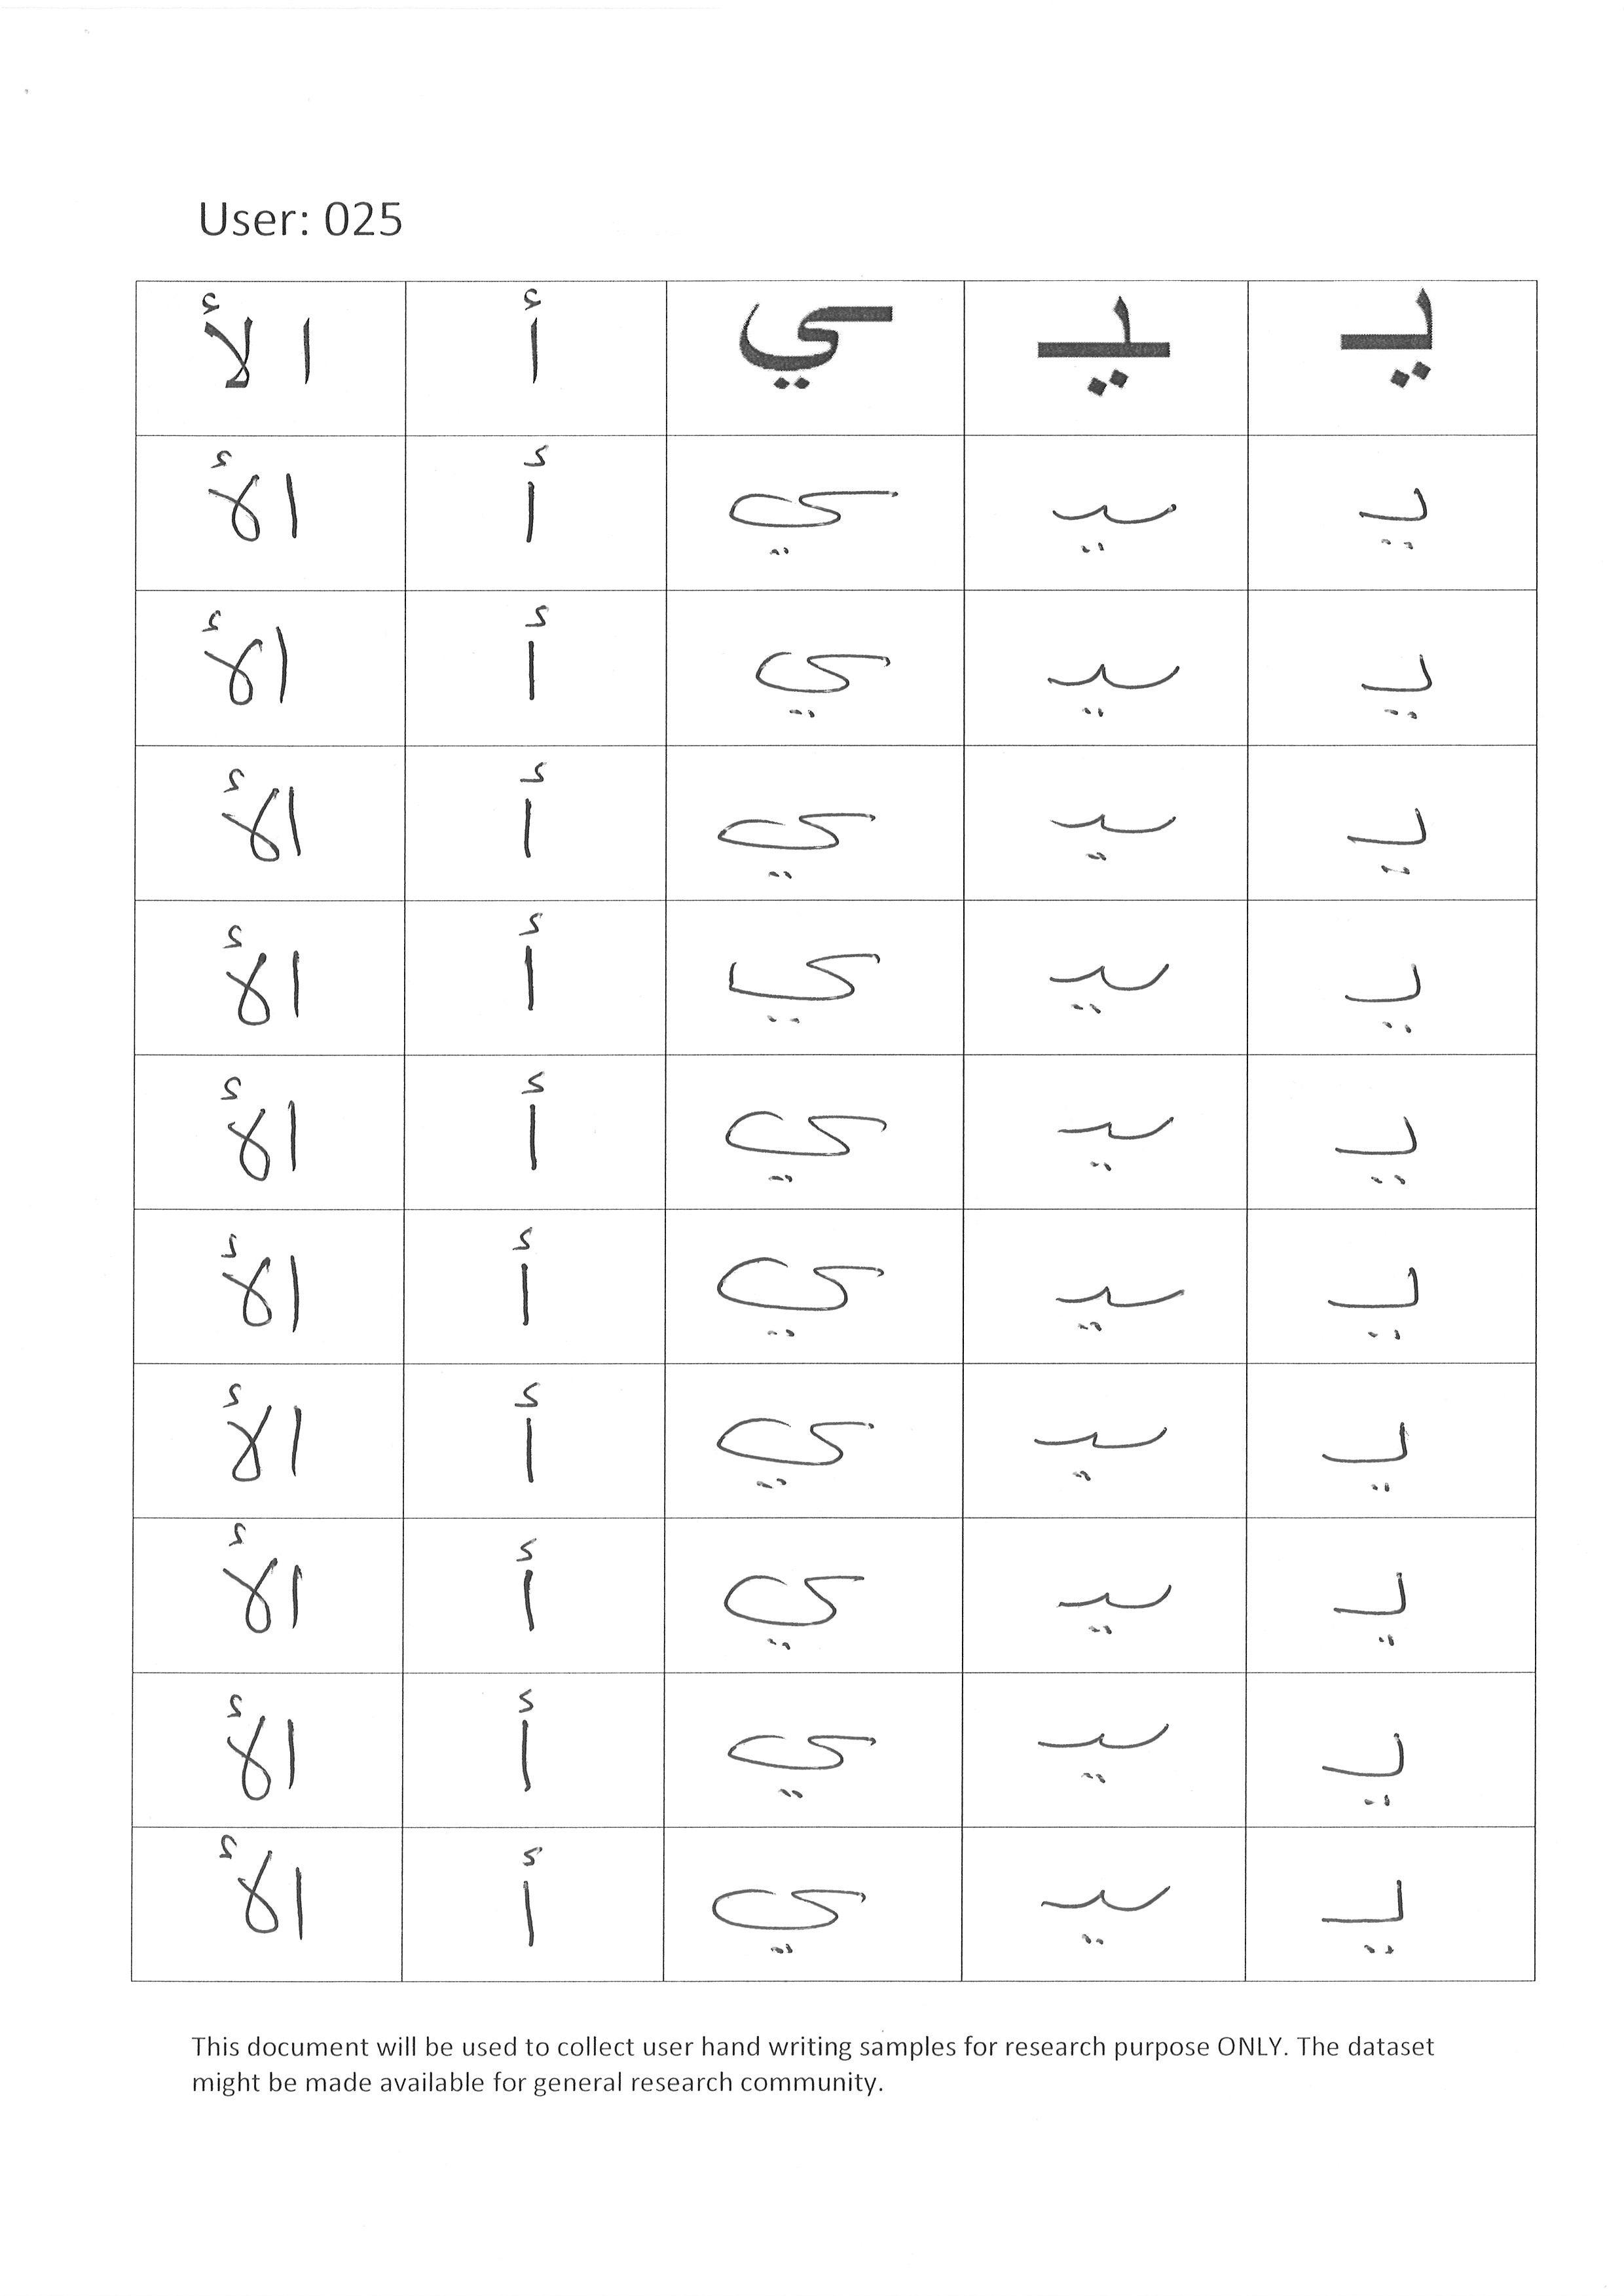 User: 025
يـ ـيـ ـي أ الأ
يـ ـيـ ـي أ الأ
يـ ـيـ ـي أ الأ
يـ ـيـ ـي أ الأ
يـ ـيـ ـي أ الأ
يـ ـيـ ـي أ الأ
يـ ـيـ ـي أ الأ
يـ ـيـ ـي أ الأ
يـ ـيـ ـي أ الأ
يـ ـيـ ـي أ الأ
يـ ـيـ ـي أ الأ
This document will be used to collect user hand writing samples for research purpose ONLY. The dataset
might be made available for general research community.